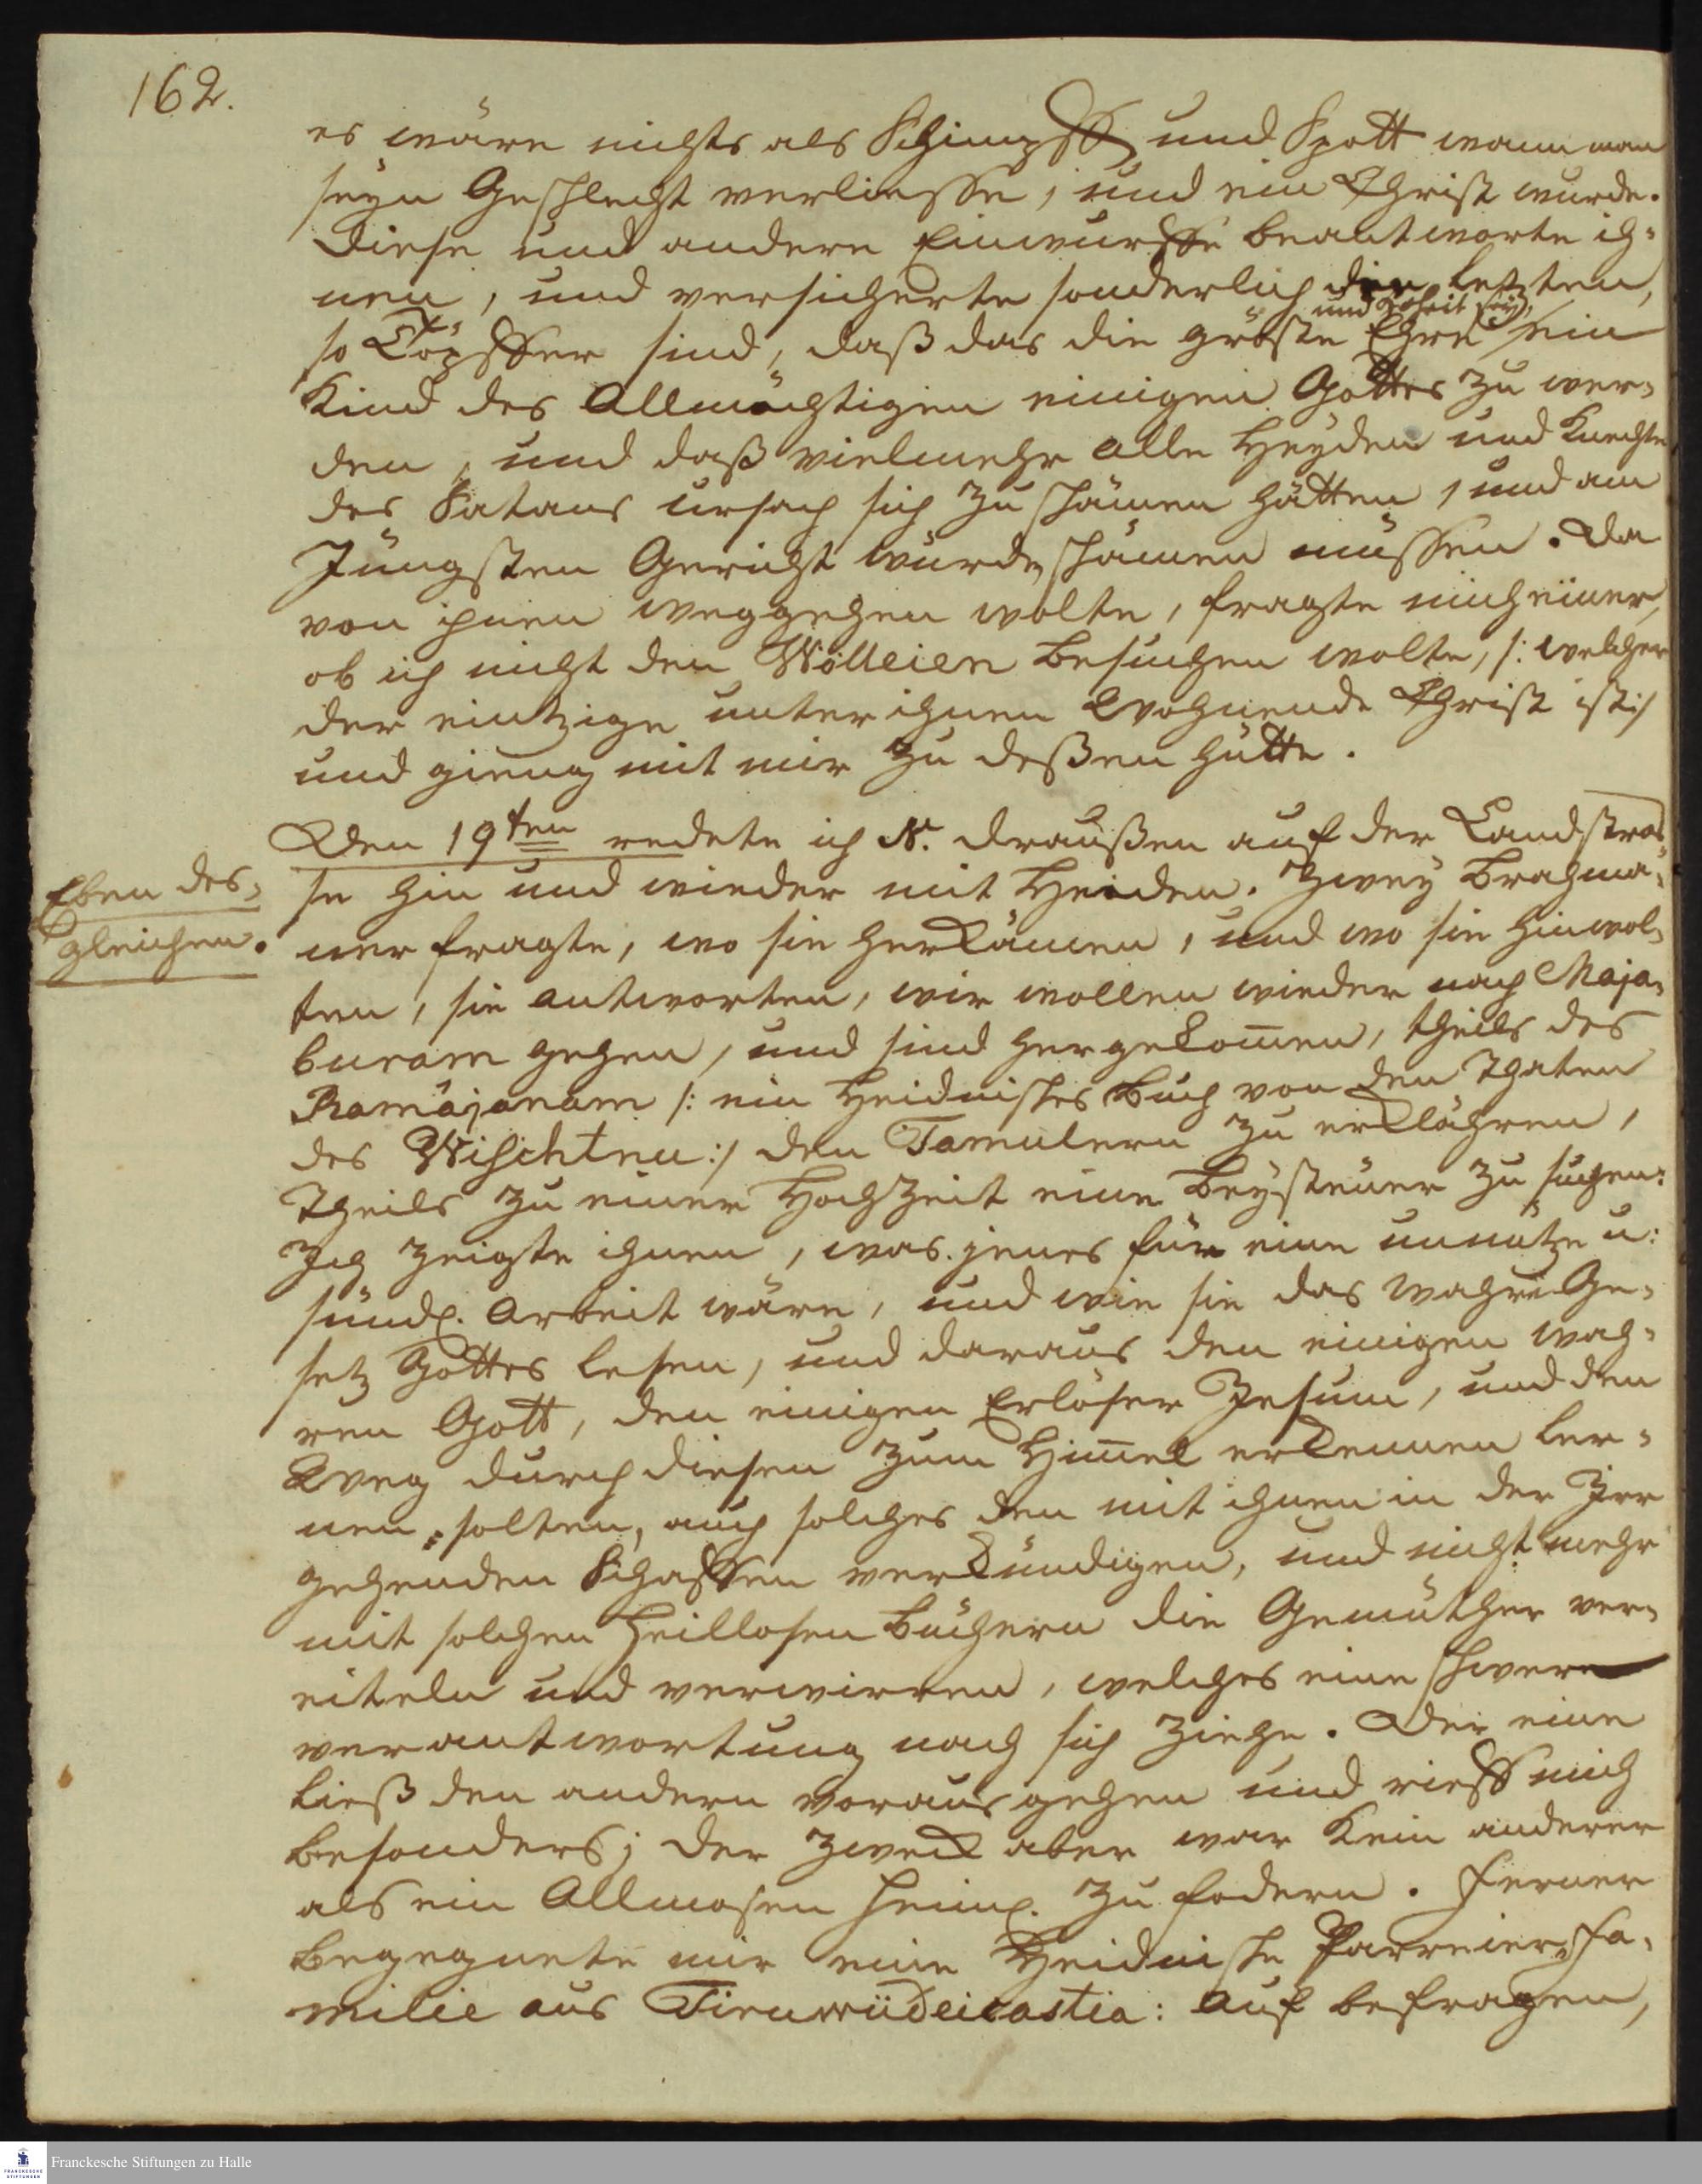 162.
es wäre nichts als Schimpff und Spott wann man
seyn Geschlecht verliesse, und ein Christ wurde.
Diese und andere Einwürffe beantworte ih¬
nen, und versicherte sonderlich die letzten,
und Hoheit sey,
so Töpffer sind, daß das die gröste Ehre ein
Kind des Allmächtigen einigen Gottes zu wer¬
den, und daß vielmehr alle Heyden und Knechte
des Satans ursach sich zu schämen hätten, und am
Jüngsten Gericht würden schämen müssen. Da
von ihnen weggehen wolte, fragte mich einer,
ob ich nicht den Wölleien besuchen wolte, /: welcher
der eintzige unter ihnen wohnende Christ ist :/
und gieng mit mir zu deßen Hütte.
Den 19ten redete ich N. draußen auf der Landstras¬
Eben des¬
gleichen.
se hin und wieder mit Heiden. Zwey Brahma¬
ner fragte, wo sie herkämen, und wo sie hinwol¬
ten, sie antworten, wir wollen wieder nach Maja¬
buram gehen, und sind hergekom̅en, theils des
Ramäjanam /: ein Heidnisches Buch von den Thaten
des Wischtnu :/ den Tamulern zu erklähren,
Theils zu einer Hochzeit eine Beysteuer zu suchen:
Ich zeigte ihnen, was jenes für eine unnütze u:
sündl. Arbeit wäre, und wie sie das wahre Ge¬
setz Gottes lesen, und daraus den einigen wah¬
ren Gott, den einigen Erlöser Jesum, und den
Weg durch diesen zum Him̅el erkennen ler¬
nen solten, auch solches den mit ihnen in der Irr
gehenden Schaffen verkündigen, und nicht mehr
mit solchen heillosen Büchern die Gemüther ver¬
eiteln und verwirren, welches eine schwere
verantwortung nach sich ziehe. Der eine
ließ den andern voraus gehen und rieff mich
besonders; der Zweck aber war kein anderer
als ein Allmosen heiml. zu fodern. Ferner
begegnete mir eine Heidnische Parreier¬Fa¬
milie aus Tiruwüdeicastia: auf befragen,
Franckesche Stiftungen zu Halle